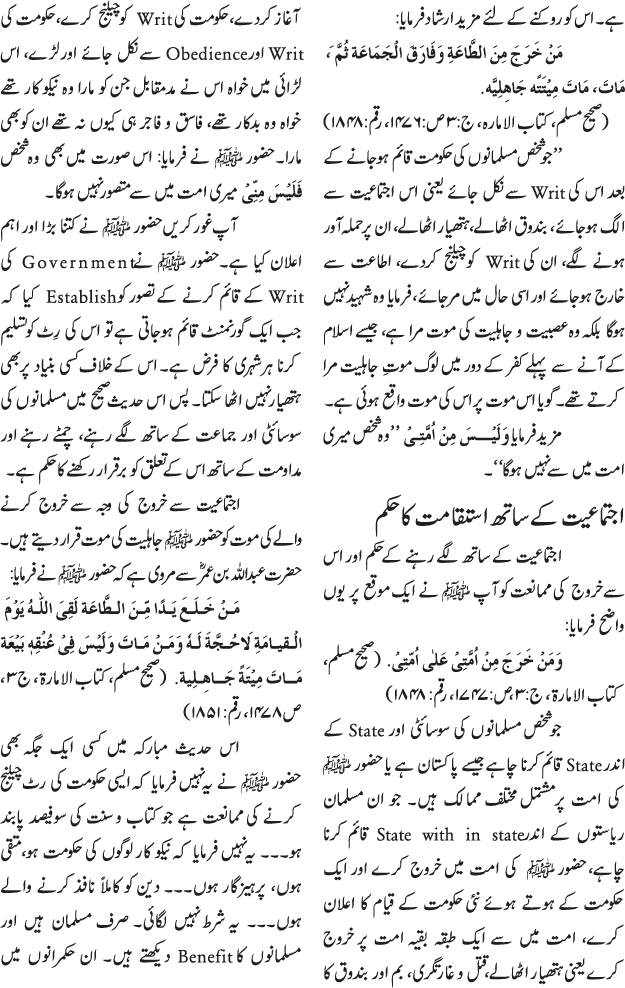 ہے۔ اس کو روکنے کے لئے مزید ارشاد فرمایا:
مَنْ خَرَجَ مِنَ الطَّاعَةِ وَفَارَقَ الْجَمَاعَةَ ثُمَّ ،
مَاتَ، مَاتَ مِيْتَتُه جَاهِلِيَّه.
(صحیح مسلم، کتاب الامارہ، ج:۳ ص:۱۴۷۶، رقم:۱۸۴۸)
’’جو شخص مسلمانوں کی حکومت قائم ہوجانے کے
بعد اس کی Writ سے نکل جائے یعنی اس اجتماعیت سے
الگ ہوجائے، بندوق اٹھالے، ہتھیار اٹھالے، ان پر حملہ آور
ہونے لگے، ان کی Writ کو چیلنج کردے، اطاعت سے
خارج ہوجائے اور اسی حال میں مرجائے، فرمایا وہ شہید نہیں
ہوگا بلکہ وہ عصبیت و جاہلیت کی موت مرا ہے، جیسے اسلام
کے آنے سے پہلے کفر کے دور میں لوگ موتِ جاہلیت مرا
کرتے تھے۔ گویا اس موت پر اس کی موت واقع ہوئی ہے۔
مزید فرمایا وَلَيْسَ مِنْ اُمَّتِيْ ’’وہ شخص میری
امت میں سے نہیں ہوگا‘‘۔
اجتماعیت کے ساتھ استقامت کا حکم
اجتماعیت کے ساتھ لگے رہنے کے حکم اور اس
سے خروج کی ممانعت کو آپ ﷺ نے ایک موقع پر یوں
واضح فرمایا:
وَمَنْ خَرَجَ مِنْ اُمَّتِيْ عَلٰى اُمَّتِيْ. (صحیح مسلم،
کتاب الامارۃ، ج:۳ ص:۱۷۴۷، رقم: ۱۸۴۸)
جو شخص مسلمانوں کی سوسائٹی اور State کے
اندر State قائم کرنا چاہے جیسے پاکستان ہے یا حضور ﷺ
کی امت پر مشتمل مختلف ممالک ہیں۔ جو ان مسلمان
ریاستوں کے اندر State with in state قائم کرنا
چاہے، حضور ﷺ کی امت میں خروج کرے اور ایک
حکومت کے ہوتے ہوئے نئی حکومت کے قیام کا اعلان
کرے، امت میں سے ایک طبقہ بقیہ امت پر خروج
کرے یعنی ہتھیار اٹھالے، قتل و غارتگری، بم اور بندوق کا
آغاز کردے، حکومت کی Writ کو چیلنج کرے، حکومت کی
Writ اور Obedience سے نکل جائے اور لڑے، اس
لڑائی میں خواہ اس نے مدمقابل جن کو مارا وہ نیکو کار تھے
خواہ وہ بدکار تھے، فاسق و فاجر ہی کیوں نہ تھے ان کو بھی
مارا۔ حضور ﷺ نے فرمایا: اس صورت میں بھی وہ شخص
فَلَيْسَ مِنِّيْ میری امت میں سے متصور نہیں ہوگا۔
آپ غور کریں حضور ﷺ نے کتنا بڑا اور اہم
اعلان کیا ہے۔ حضور ﷺ نے Government کی
Writ کے قائم کرنے کے تصور کو Establish کیا کہ
جب ایک گورنمنٹ قائم ہوجاتی ہے تو اس کی رِٹ کو تسلیم
کرنا ہر شہری کا فرض ہے۔ اس کے خلاف کسی بنیاد پر بھی
ہتھیار نہیں اٹھا سکتا۔ پس اس حدیث صحیح میں مسلمانوں کی
سوسائٹی اور جماعت کے ساتھ لگے رہنے، چمٹے رہنے اور
مداومت کے ساتھ اس کے تعلق کو برقرار رکھنے کا حکم ہے۔
اجتماعیت سے خروج کی وجہ سے خروج کرنے
والے کی موت کو حضور ﷺ جاہلیت کی موت قرار دیتے ہیں۔
حضرت عبداللہ بن عمرؓ سے مروی ہے کہ حضور ﷺ نے فرمایا:
مَنْ خَلَعَ يَدًا مِّنَ الطَّاعَة لَقِيَ اللّٰهُ يَوْمَ
الْقِيامَةِ لَاحُجَّةَ لَهُ وَمَنْ مَاتَ وَلَيْسَ فِيْ عُنُقِهِ بَيْعَة
مَاتَ مِيْتَةً جَاهِلِية. (صحیح مسلم، کتاب الامارۃ، ج۳،
ص۱۴۷۸، رقم: ۱۸۵۱)
اس حدیث مبارکہ میں کسی ایک جگہ بھی
حضور ﷺ نے یہ نہیں فرمایا کہ ایسی حکومت کی رٹ چیلنج
کرنے کی ممانعت ہے جو کتاب و سنت کی سوفیصد پابند
ہو۔۔۔ یہ نہیں فرمایا کہ نیکو کار لوگوں کی حکومت ہو، متقی
ہوں، پرہیزگار ہوں۔۔۔ دین کو کاملاً نافذ کرنے والے
ہوں۔۔۔ یہ شرط نہیں لگائی۔ صرف مسلمان ہیں اور
مسلمانوں کا Benefit دیکھتے ہیں۔ ان حکمرانوں میں